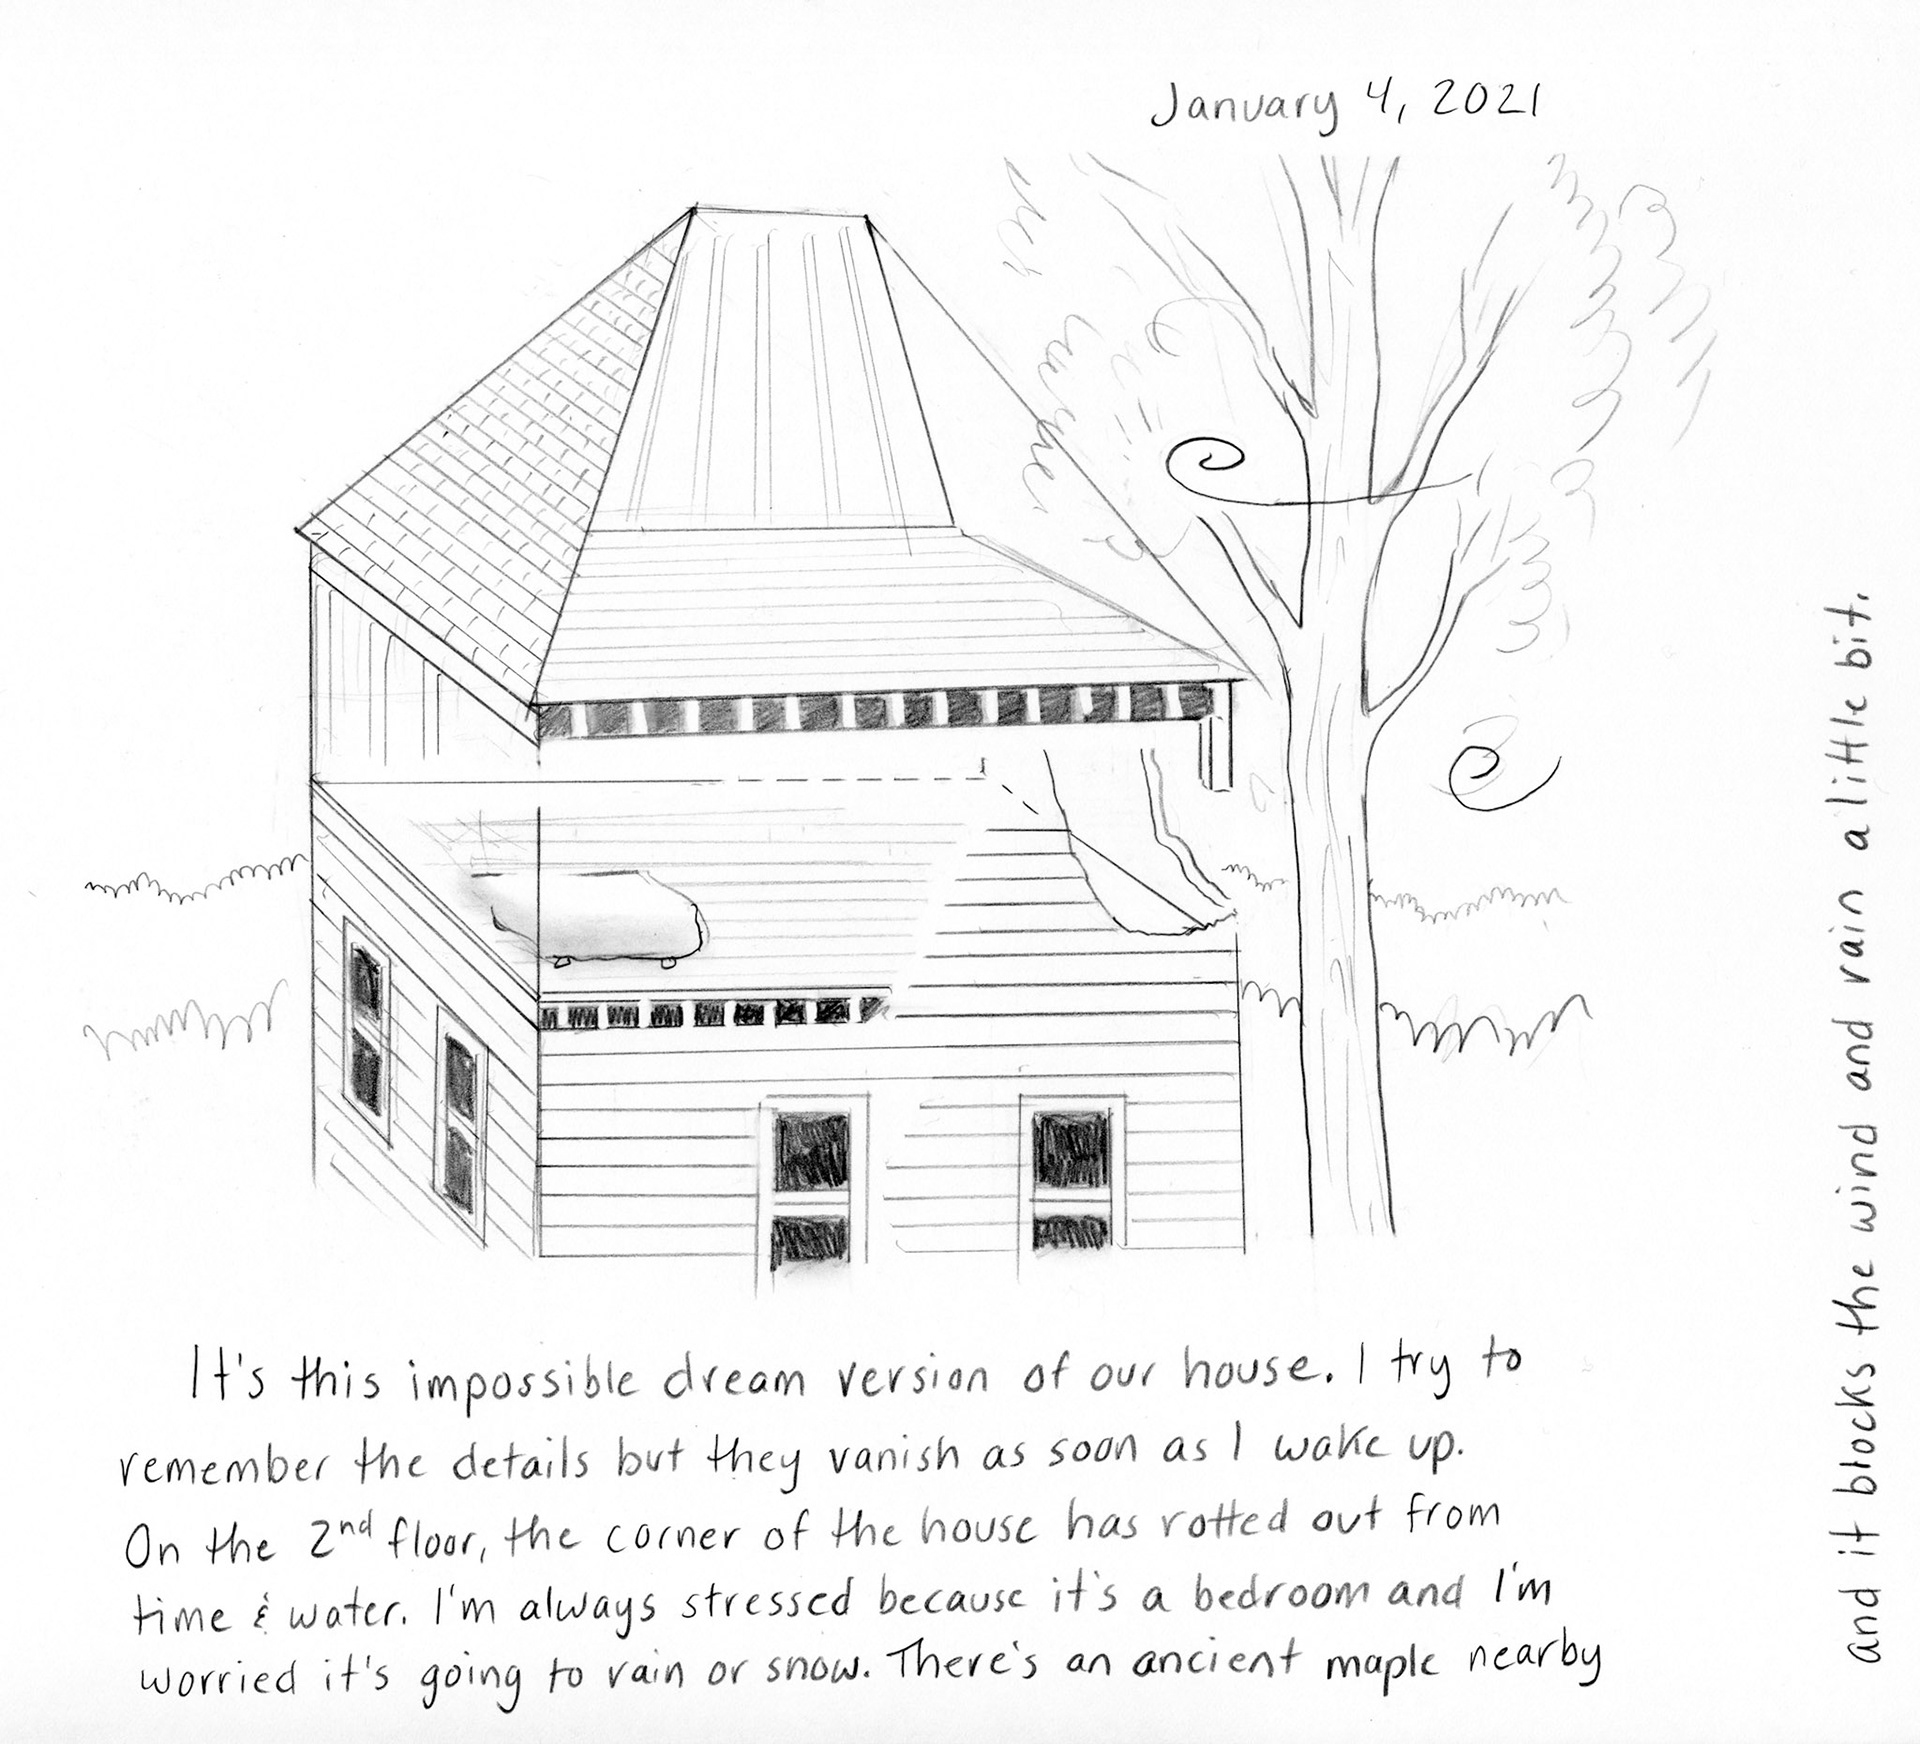 January 4, 2021
It's this impossible dream version of our house. I try to
remember the details but they vanish as soon as I wake up.
On the 2nd floor, the corner of the house has rotted out from
time & water. I'm always stressed because it's a bedroom and I'm
worried it's going to rain or snow. There's an ancient maple nearby
and it blocks the wind and rain a little bit.